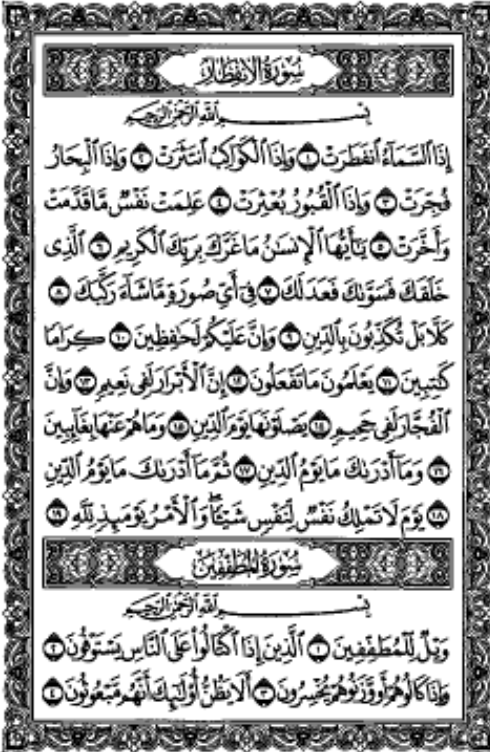 سُورَةُ الانفِطَارِ
بِسْمِ اللَّهِ الرَّحْمَٰنِ الرَّحِيمِ
إِذَا السَّمَاءُ انفَطَرَتْ ١ وَإِذَا الْكَوَاكِبُ انتَثَرَتْ ٢ وَإِذَا الْبِحَارُ
فُجِّرَتْ ٣ وَإِذَا الْقُبُورُ بُعْثِرَتْ ٤ عَلِمَتْ نَفْسٌ مَّا قَدَّمَتْ
وَأَخَّرَتْ ٥ يَٰأَيُّهَا الْإِنسَٰنُ مَا غَرَّكَ بِرَبِّكَ الْكَرِيمِ ٦ الَّذِى
خَلَقَكَ فَسَوَّىٰكَ فَعَدَلَكَ ٧ فِىٓ أَىِّ صُورَةٍ مَّا شَاءَ رَكَّبَكَ ٨
كَلَّا بَلْ تُكَذِّبُونَ بِالدِّينِ ٩ وَإِنَّ عَلَيْكُمْ لَحَٰفِظِينَ ١٠ كِرَامًا
كَٰتِبِينَ ١١ يَعْلَمُونَ مَا تَفْعَلُونَ ١٢ إِنَّ الْأَبْرَارَ لَفِى نَعِيمٍ ١٣ وَإِنَّ
الْفُجَّارَ لَفِى جَحِيمٍ ١٤ يَصْلَوْنَهَا يَوْمَ الدِّينِ ١٥ وَمَا هُمْ عَنْهَا بِغَآئِبِينَ
١٦ وَمَآ أَدْرَىٰكَ مَا يَوْمُ الدِّينِ ١٧ ثُمَّ مَآ أَدْرَىٰكَ مَا يَوْمُ الدِّينِ
١٨ يَوْمَ لَا تَمْلِكُ نَفْسٌ لِّنَفْسٍ شَيْـًٔا ۖ وَالْأَمْرُ يَوْمَئِذٍ لِّلَّهِ ١٩
سُورَةُ المُطَفِّفِينَ
بِسْمِ اللَّهِ الرَّحْمَٰنِ الرَّحِيمِ
وَيْلٌ لِّلْمُطَفِّفِينَ ١ الَّذِينَ إِذَا اكْتَالُوا عَلَى النَّاسِ يَسْتَوْفُونَ ٢
وَإِذَا كَالُوهُمْ أَو وَّزَنُوهُمْ يُخْسِرُونَ ٣ أَلَا يَظُنُّ أُو۟لَٰٓئِكَ أَنَّهُم مَّبْعُوثُونَ ٤